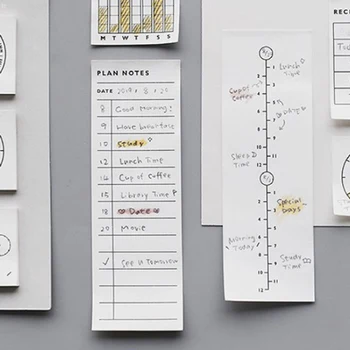 M T W T F S S
PLAN NOTES
DATE 2018. 8. 20
8 Good Morning!
9 Have breakfast
10 Study
12 Lunch Time
14 Cup of coffee
15 Library Time
18 Date
20 Movie
✓ See u Tomorrow
RECE
Lunch Time
Cup of coffee
Study
Sleep Time
Special days
Morning Today
Study Time
1
2
3
4
5
6
7
8
9
10
11
12
1
2
3
4
5
6
7
8
9
10
11
12